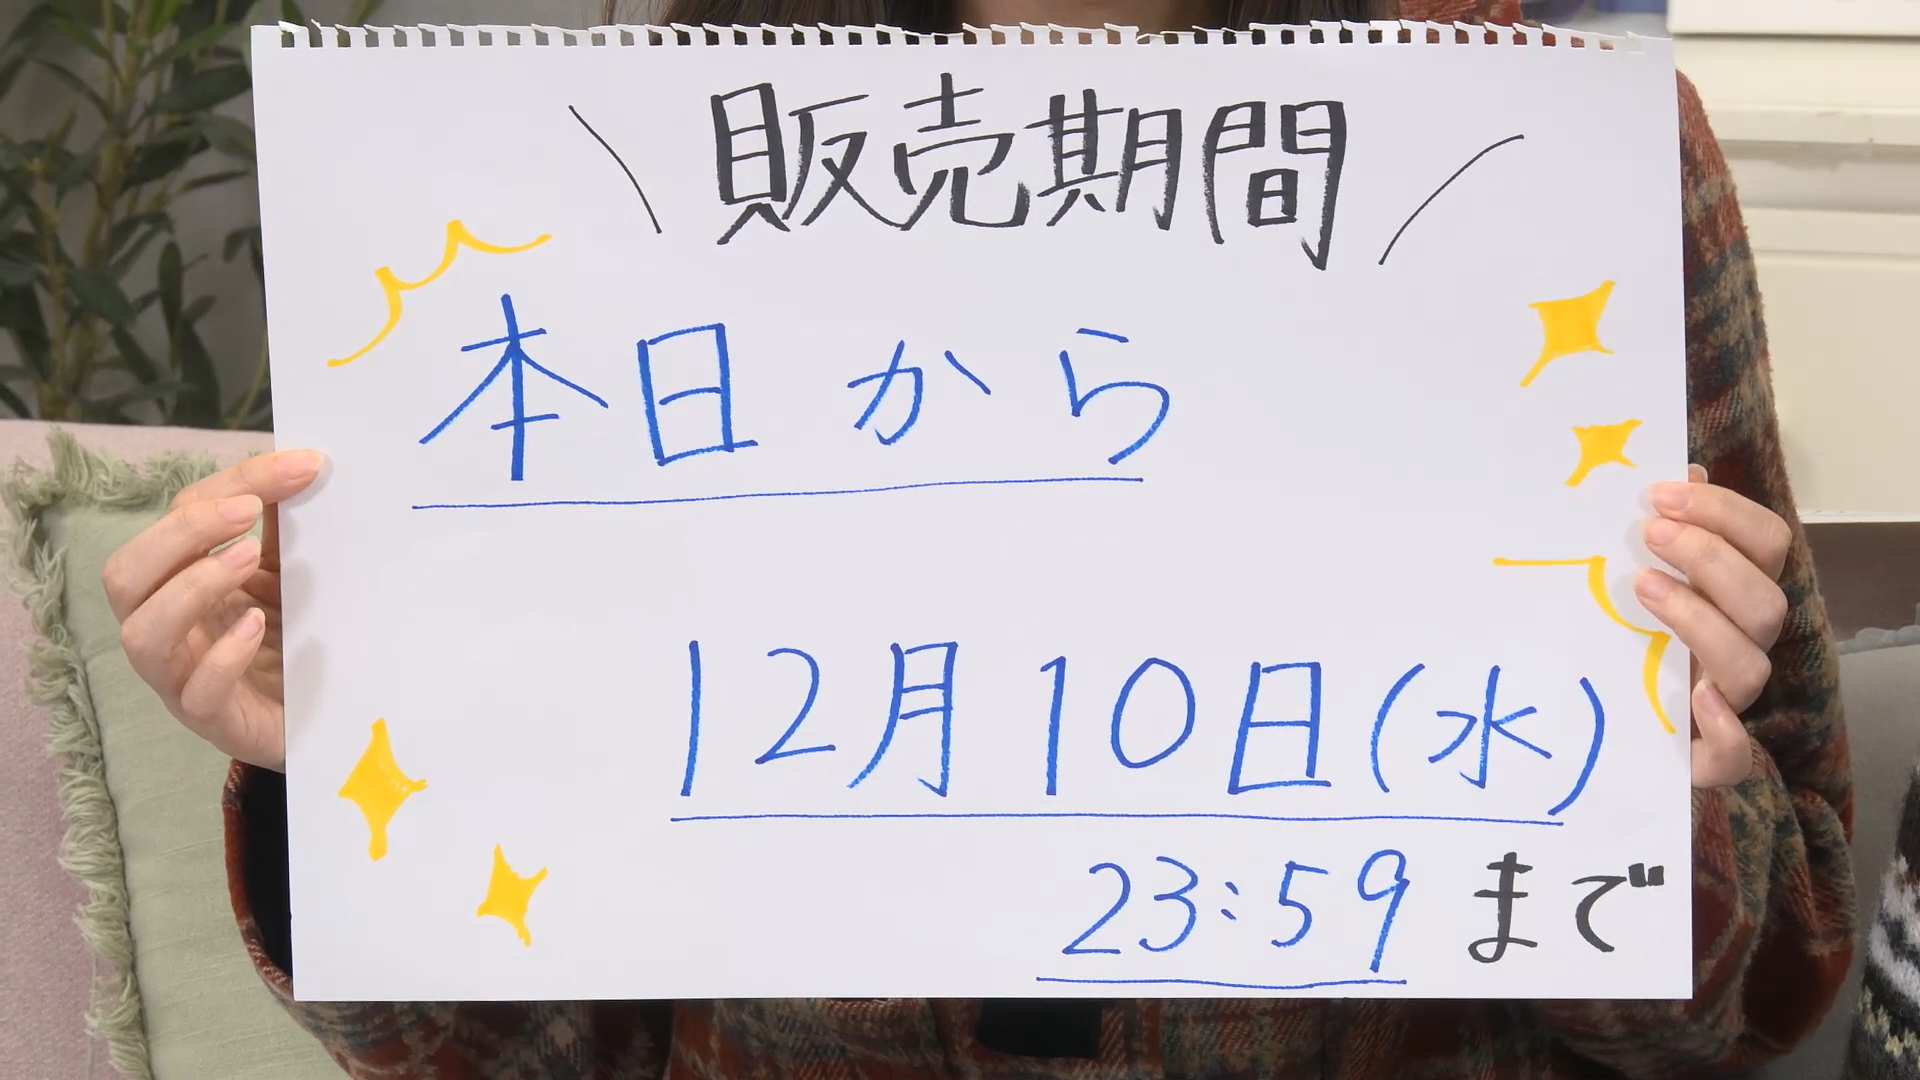 販売期間
本日から
12月10日(水)
23:59 まで